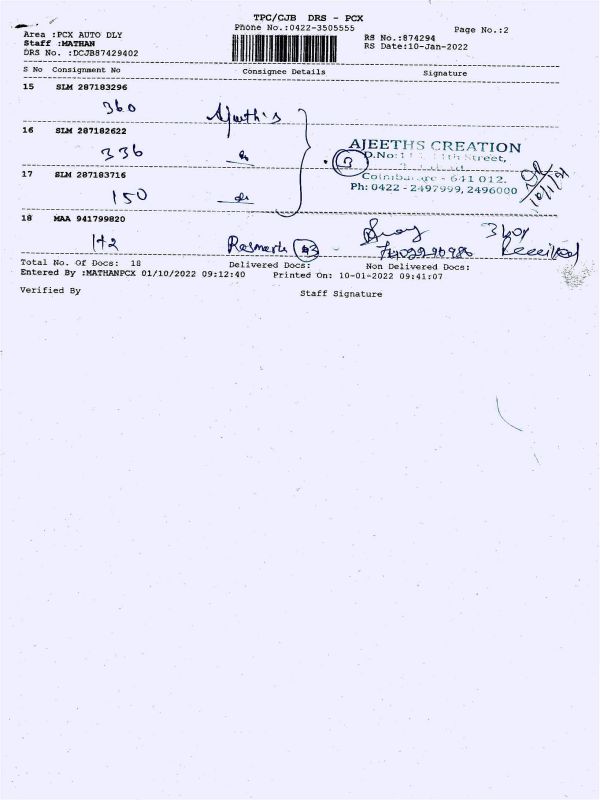 TPC/CJB DRS - PCX
Phone No.:0422-3505555
Page No.:2
Area :PCX AUTO DLY
Staff :MATHAN
DRS No. :DCJB87429402
RS No.:874294
RS Date:10-Jan-2022
S No Consignment No Consignee Details Signature
15 SLM 287183296
360
16 SLM 287182622
336
AJEETHS CREATION
D.No: 11th Street,
17 SLM 287183716
Coimbatore - 641 012.
150
Ph: 0422 - 2497999, 2496000
18 MAA 941799820
1+2
3 Box
Received
Total No. Of Docs: 18 Delivered Docs: Non Delivered Docs:
Entered By :MATHANPCX 01/10/2022 09:12:40 Printed On: 10-01-2022 09:41:07
Verified By Staff Signature